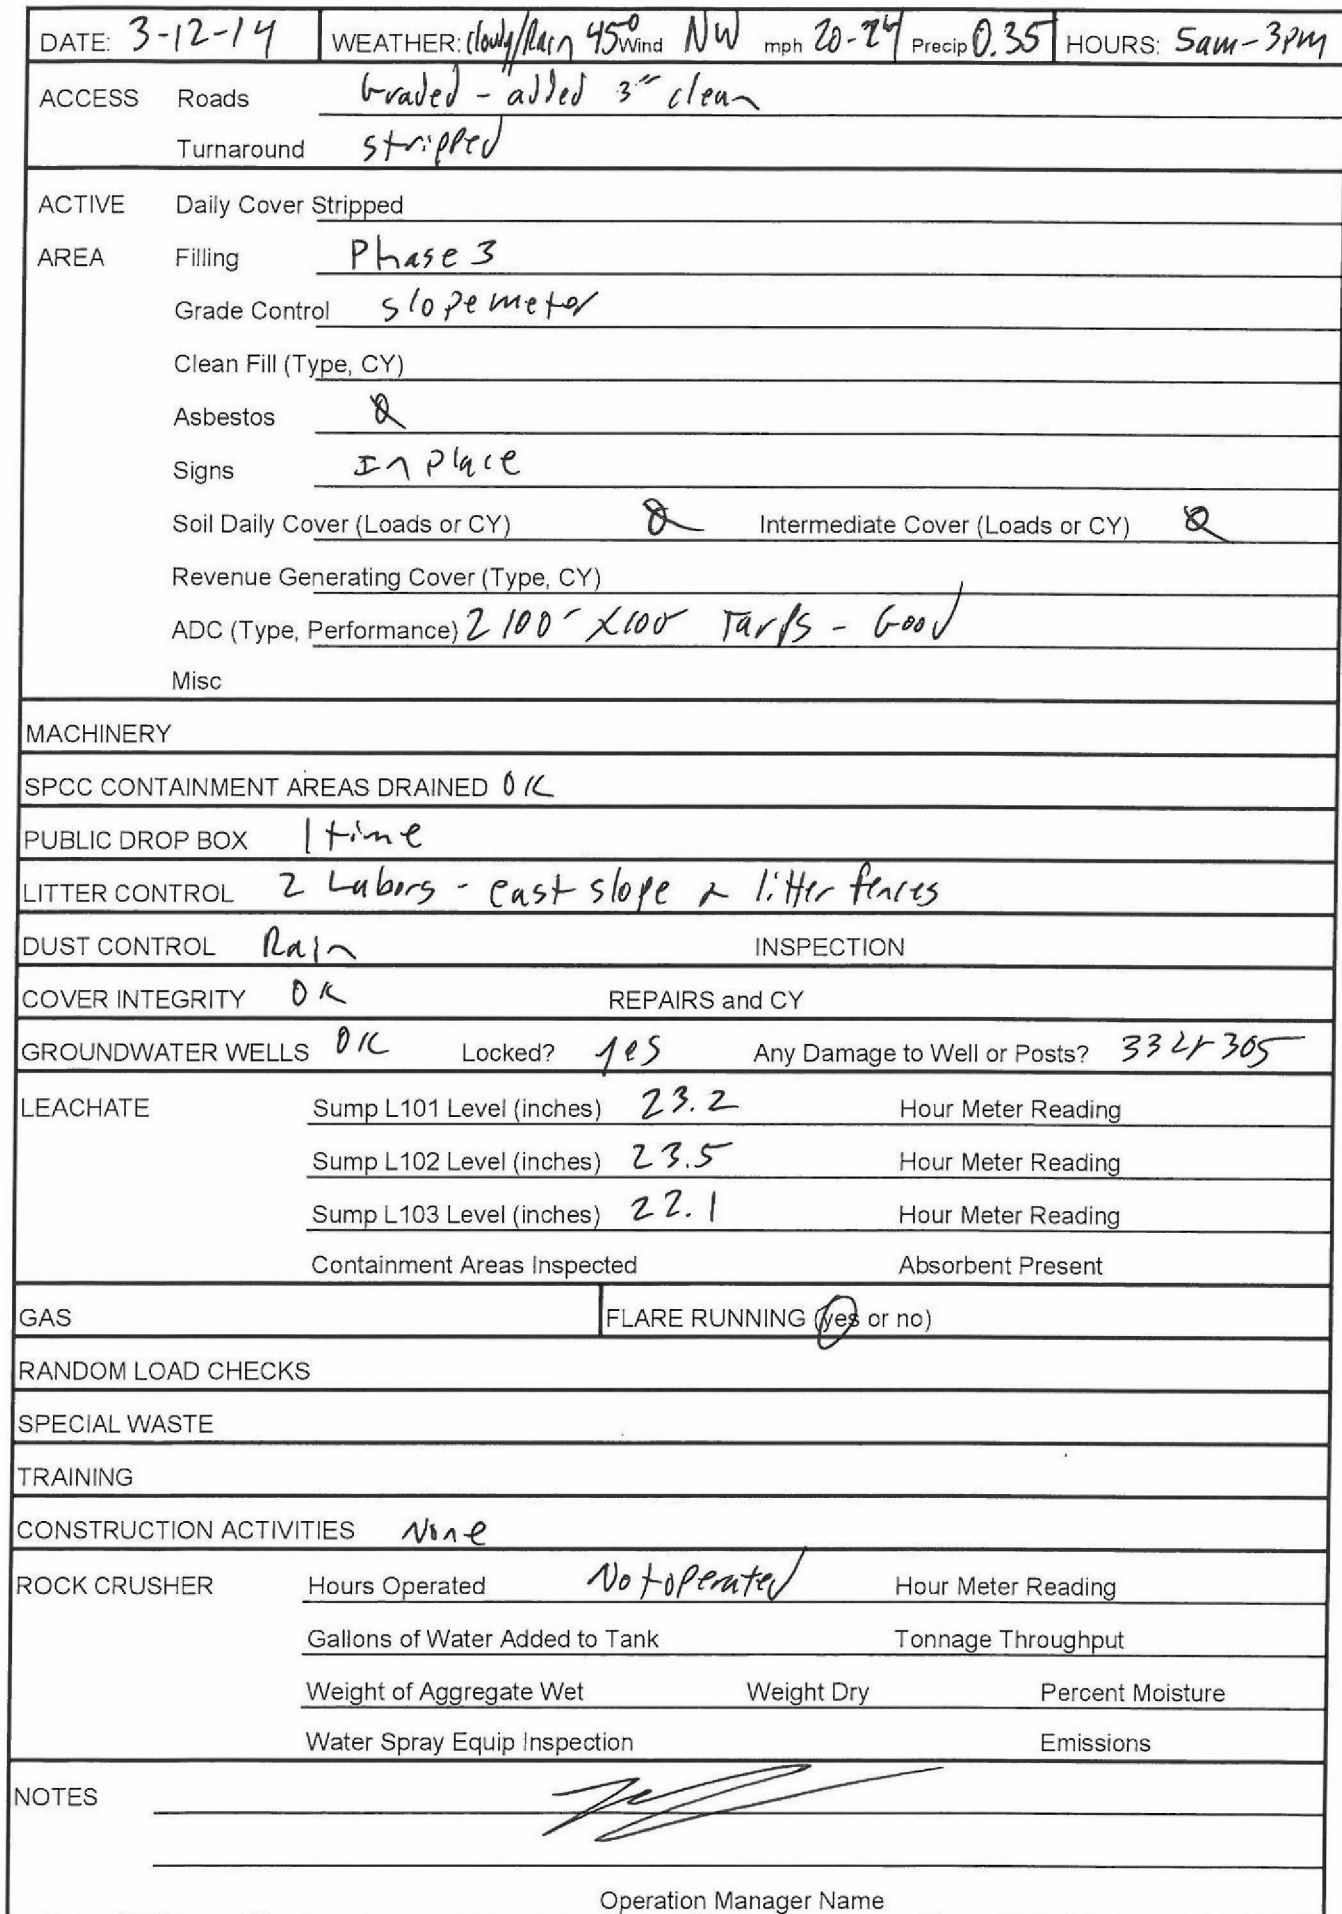 DATE: 3-12-14 WEATHER: Cloudy/Rain 45° Wind NW mph 20-24 Precip 0.35 HOURS: 5am-3pm
ACCESS Roads Graded - added 3" clean
Turnaround stripped
ACTIVE Daily Cover Stripped
AREA Filling Phase 3
Grade Control slope meter
Clean Fill (Type, CY)
Asbestos Ø
Signs In place
Soil Daily Cover (Loads or CY) Ø Intermediate Cover (Loads or CY) Ø
Revenue Generating Cover (Type, CY)
ADC (Type, Performance) 2 100' x 100' Tarps - Good
Misc
MACHINERY
SPCC CONTAINMENT AREAS DRAINED OK
PUBLIC DROP BOX 1 time
LITTER CONTROL 2 Labors - east slope & litter fences
DUST CONTROL Rain INSPECTION
COVER INTEGRITY OK REPAIRS and CY
GROUNDWATER WELLS OK Locked? yes Any Damage to Well or Posts? 305
LEACHATE Sump L101 Level (inches) 23.2 Hour Meter Reading
Sump L102 Level (inches) 23.5 Hour Meter Reading
Sump L103 Level (inches) 22.1 Hour Meter Reading
Containment Areas Inspected Absorbent Present
GAS FLARE RUNNING (yes or no)
RANDOM LOAD CHECKS
SPECIAL WASTE
TRAINING
CONSTRUCTION ACTIVITIES None
ROCK CRUSHER Hours Operated Not operated Hour Meter Reading
Gallons of Water Added to Tank Tonnage Throughput
Weight of Aggregate Wet Weight Dry Percent Moisture
Water Spray Equip Inspection Emissions
NOTES
Operation Manager Name